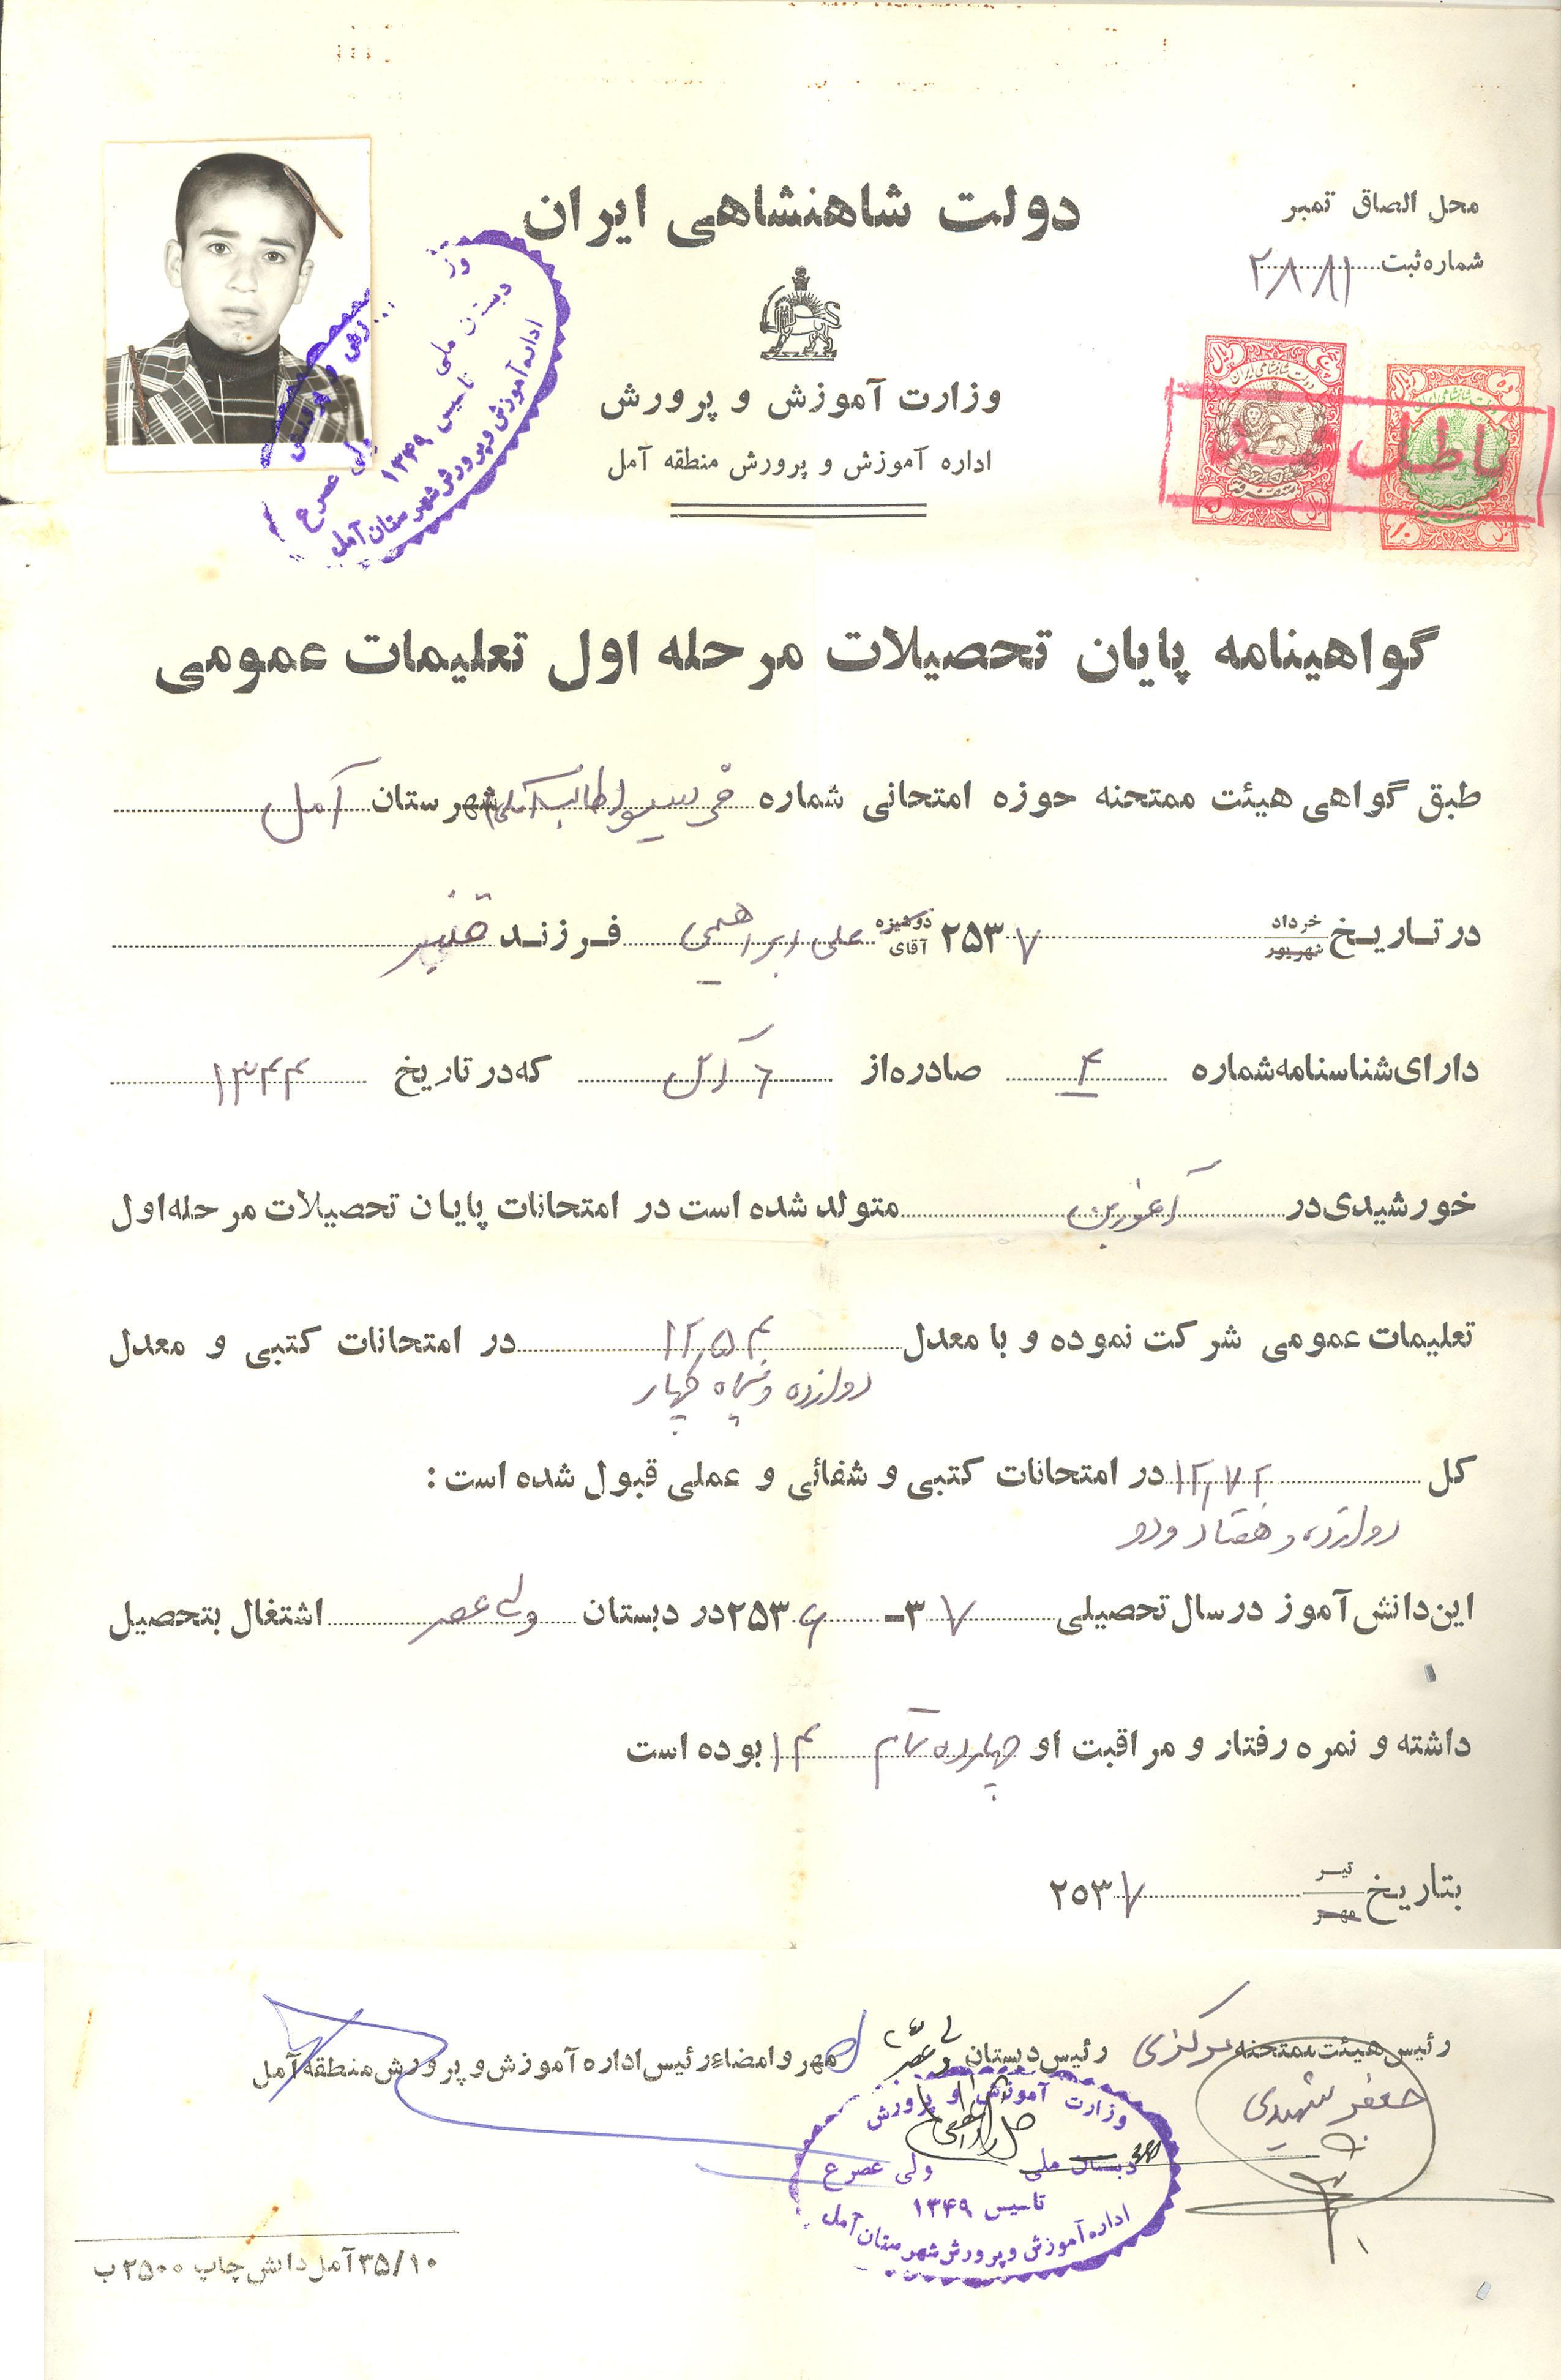 محل الصاق تمبر
شماره ثبت ۲۸۸۱
دولت شاهنشاهی ایران
وزارت آموزش و پرورش
اداره آموزش و پرورش منطقه آمل
دبستان ملی
ولی عصر ع
تاسیس ۱۳۴۹
اداره آموزش و پرورش شهرستان آمل
باطل شد
گواهینامه پایان تحصیلات مرحله اول تعلیمات عمومی
طبق گواهی هیئت ممتحنه حوزه امتحانی شماره طالب آملی شهرستان آمل
در تاریخ خرداد شهریور ۲۵۳۷ دوشیزه آقای علی ابراهیمی فرزند قنبر
دارای شناسنامه شماره ۴ صادره از ۶ آمل که در تاریخ ۱۳۴۴
خورشیدی در متولد شده است در امتحانات پایان تحصیلات مرحله اول
تعلیمات عمومی شرکت نموده و با معدل ۱۲٫۵۴ در امتحانات کتبی و معدل
دوازده و پنجاه چهار
کل ۱۲٫۷۲ در امتحانات کتبی و شفائی و عملی قبول شده است :
دوازده و هفتاد و دو
این دانش آموز در سال تحصیلی ۳۷ - ۲۵۳۶ در دبستان ولی عصر اشتغال بتحصیل
داشته و نمره رفتار و مراقبت او چهارده تمام ۱۴ بوده است
بتاریخ تیر مهر ۲۵۳۷
رئیس هیئت ممتحنه مرکزی رئیس دبستان ولی عصر مهر و امضاء رئیس اداره آموزش و پرورش منطقه آمل
جعفر شهیدی
وزارت آموزش و پرورش
دبستان ملی ولی عصر ع
تاسیس ۱۳۴۹
اداره آموزش و پرورش شهرستان آمل
۳۵/۱۰ آمل دانش چاپ ۲۵۰۰ ب